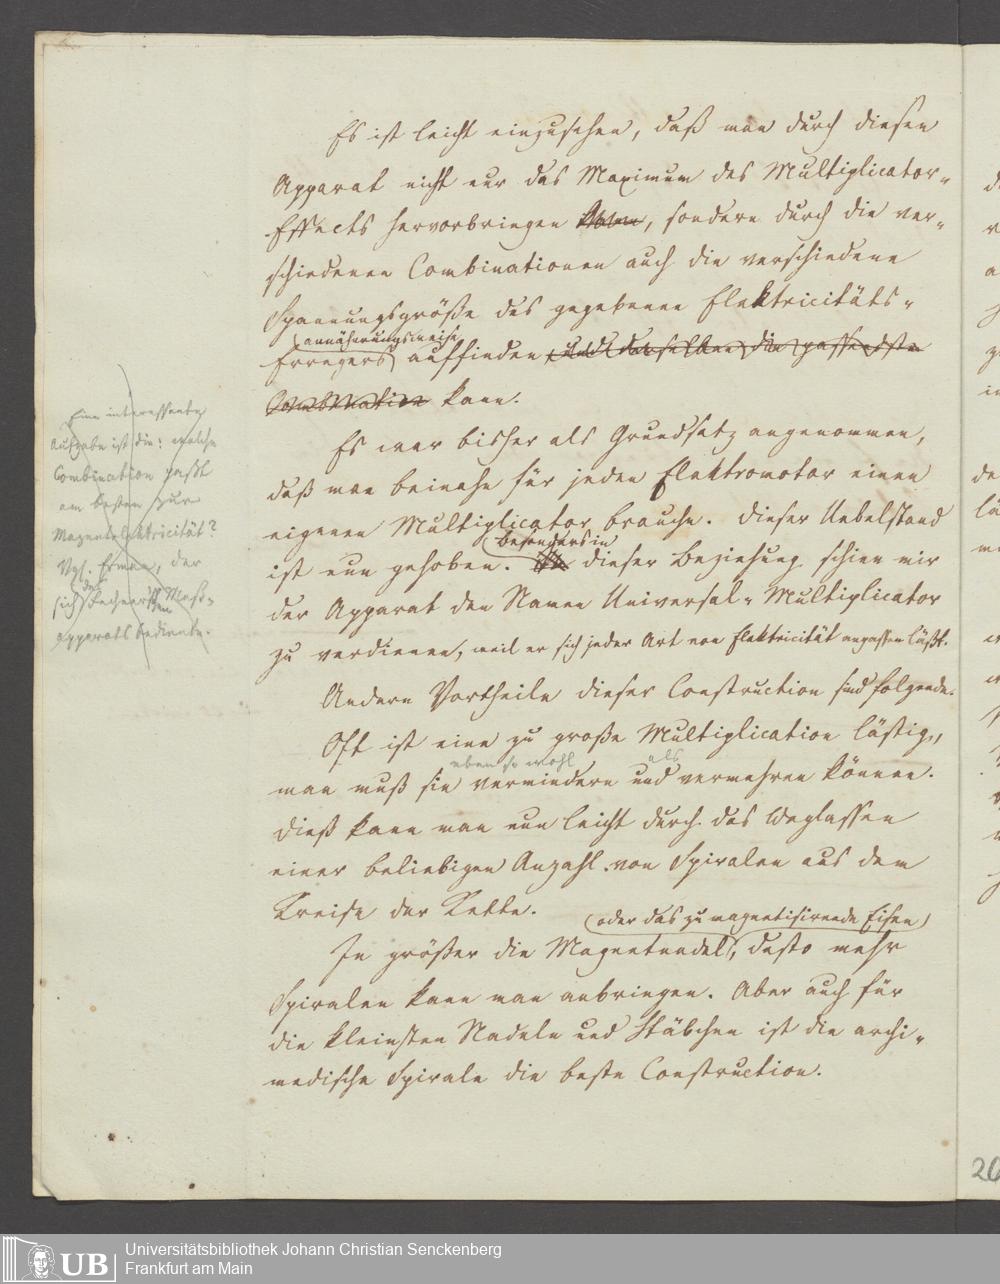 Es ist leicht einzusehen, daß man durch diesen
Apparat nicht nur das Maximum des Multiplicator-
Effects hervorbringen, sondern durch die ver-
schiedenen Combinationen auch die verschiedene
Spannungsgröße des gegebenen Elektricitäts-
annäherungsweise
Erregers auffinden und derselben die passendste
Combination kann.
Es war bisher als Grundsatz angenommen,
daß man beinahe für jeden Elektromotor einen
eigenen Multiplicator brauche. Dieser Uebelstand
besonders in
ist nun gehoben. dieser Beziehung schien mir
der Apparat den Namen Universal-Multiplicator
zu verdienen, weil er sich jeder Art von Elektricität anpassen läßt.
Andere Vortheile dieser Construction sind folgende.
Oft ist eine zu große Multiplication lästig,
eben so wohl als
man muß sie vermindern und vermehren können.
Dieß kann man nun leicht durch das Weglassen
einer beliebigen Anzahl von Spiralen aus dem
Kreise der Kette.
(oder das zu magnetisirende Eisen)
Je größer die Magnetnadel, desto mehr
Spiralen kann man anbringen. Aber auch für
die kleinsten Nadeln und Stäbchen ist die archi-
medische Spirale die beste Construction.
Eine interessante
Aufgabe ist die: welche
Combination paßt
am besten zur
Magnetelektricität?
Vgl. Erman, der
des
sich Fechner'schen Meß-
apparats bediente.
26
UB
Universitätsbibliothek Johann Christian Senckenberg
Frankfurt am Main